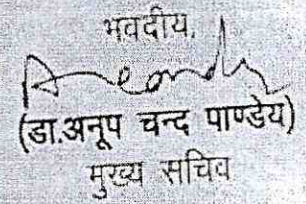 भवदीय,
(डा.अनूप चन्द पाण्डेय)
मुख्य सचिव